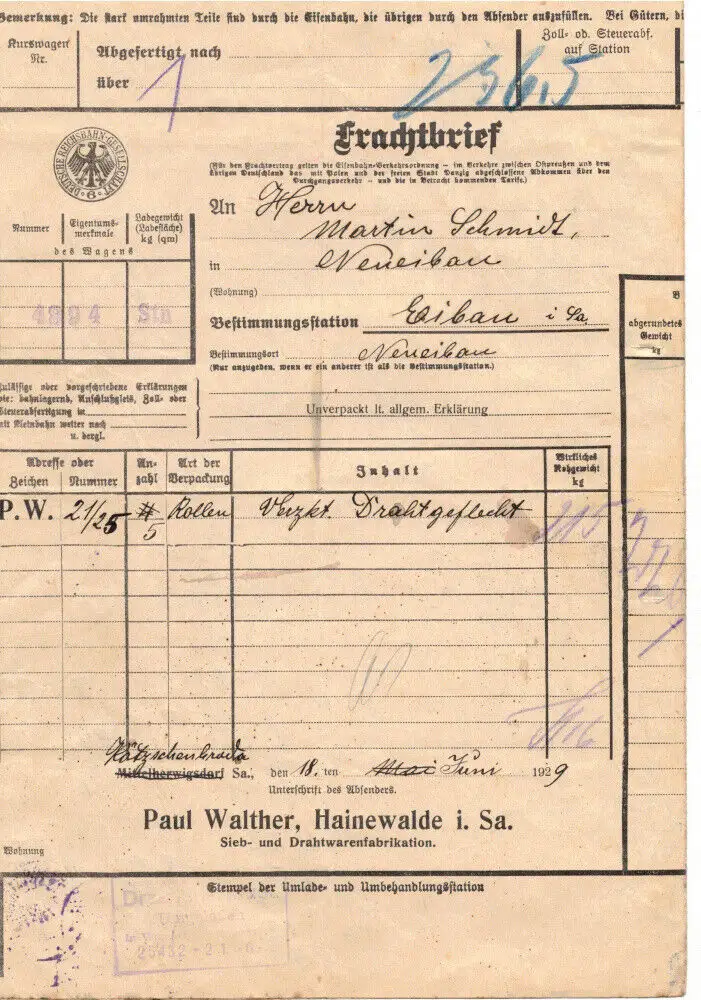 Bemerkung: Die stark umrahmten Teile sind durch die Eisenbahn, die übrigen durch den Absender auszufüllen. Bei Gütern, di
Kurswagen
Nr.
Abgefertigt nach
über
1
Zoll- od. Steuerabf.
auf Station
DEUTSCHE REICHSBAHN-GESELLSCHAFT
Frachtbrief
(Für den Frachtvertrag gelten die Eisenbahn-Verkehrsordnung – im Verkehre zwischen Ostpreußen und dem
übrigen Deutschland das mit Polen und der freien Stadt Danzig abgeschlossene Abkommen über den
Durchgangsverkehr – und die in Betracht kommenden Tarife.)
An Herrn
Martin Schmidt,
in Neueibau
(Wohnung)
Nummer
Eigentums-
merkmale
Ladegewicht
(Ladefläche)
kg (qm)
des Wagens
4894 Stn
Bestimmungsstation Eibau i Sa.
Bestimmungsort Neueibau
(Nur anzugeben, wenn er ein anderer ist als die Bestimmungsstation.)
B
abgerundetes
Gewicht
kg
zulässige oder vorgeschriebene Erklärungen
wie: bahnlagernd, Anschlußgleis, Zoll- oder
Steuerabfertigung in
mit Kleinbahn weiter nach
u. dergl.
Unverpackt lt. allgem. Erklärung
Adresse oder
Zeichen Nummer
An-
zahl
Art der
Verpackung
Inhalt
Wirkliches
Rohgewicht
kg
P.W. 21/25 5 Rollen Verzkt. Drahtgeflecht 215
Kötzschenbroda
Mittelherwigsdorf Sa., den 18. ten Mai Juni 1929
Unterschrift des Absenders.
Paul Walther, Hainewalde i. Sa.
Sieb- und Drahtwarenfabrikation.
Wohnung
Stempel der Umlade- und Umbehandlungsstation